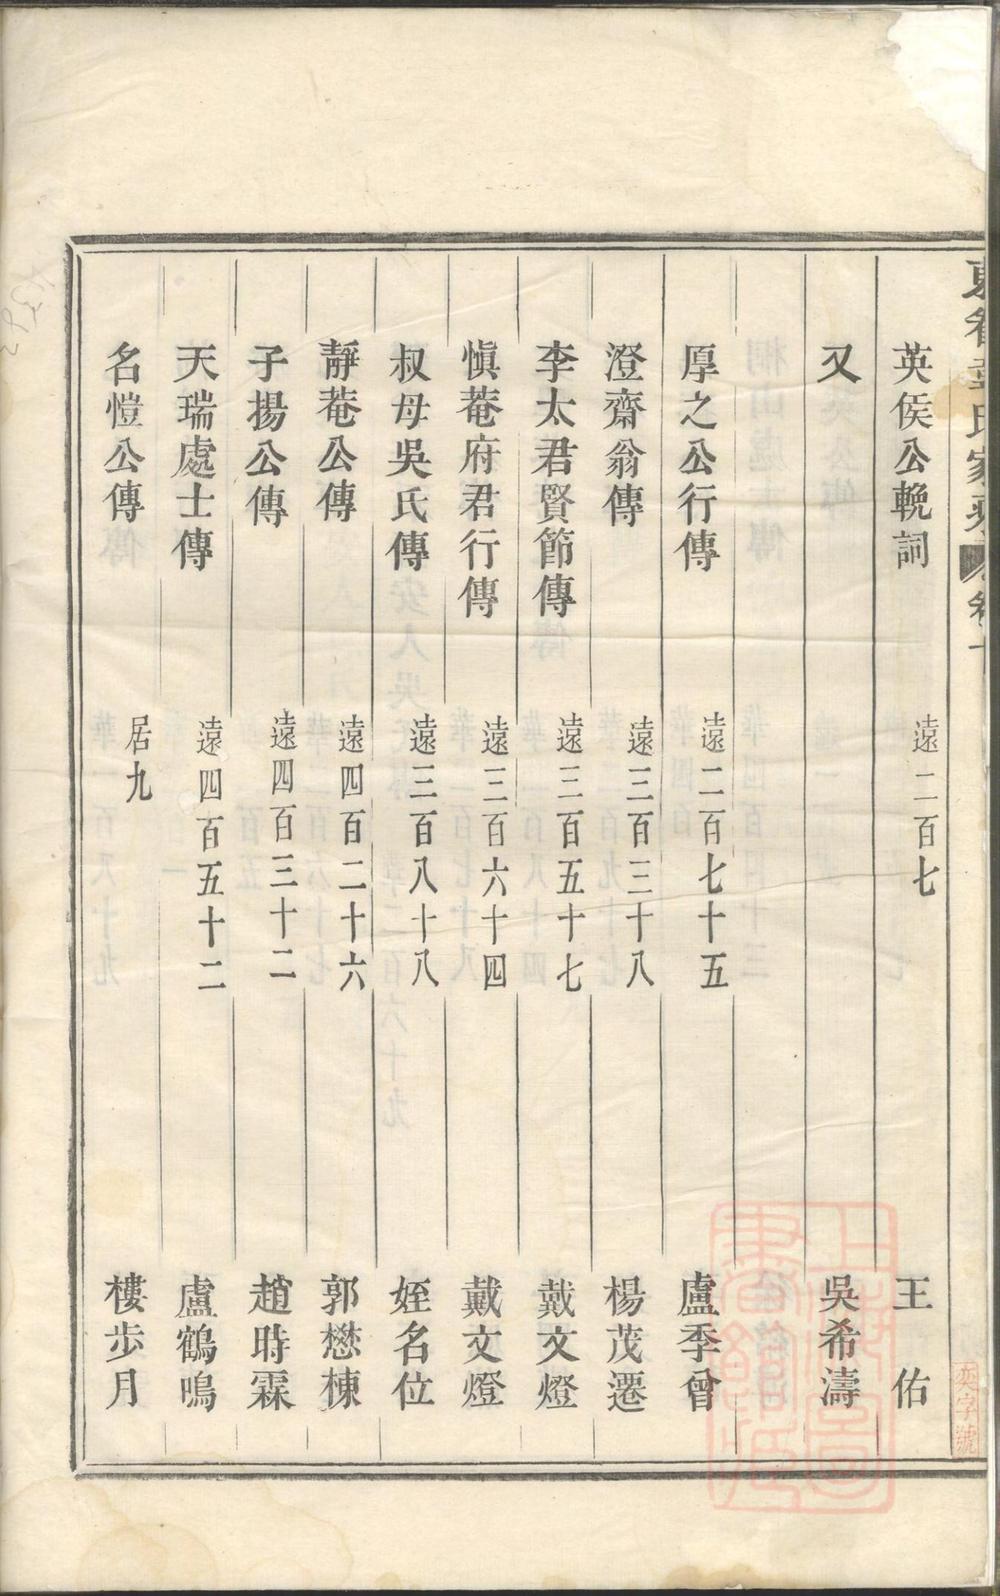 英侯公輓詞 遠二百七 王佑
又 吳希濤
厚之公行傳 遠二百七十五 盧季曾
澄齋翁傳 遠三百三十八 楊茂遷
李太君賢節傳 遠三百五十七 戴文燈
愼菴府君行傳 遠三百六十四 戴文燈
叔母吳氏傳 遠三百八十八 姪名位
靜菴公傳 遠四百二十六 郭懋棟
子揚公傳 遠四百三十二 趙時霖
天瑞處士傳 遠四百五十二 盧鶴鳴
名愷公傳 居九 樓步月
字號